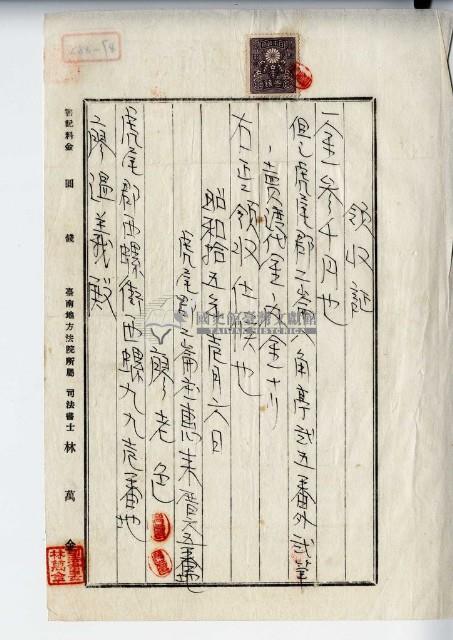 領收証
一金參千円也
但シ虎尾郡二崙八角亭貳五番外貳筆
賣渡代金內金ナリ
右正ニ領收仕候也
昭和拾五年壱月六日
虎尾郡二崙庄惠來厝六五番地
廖老色
虎尾郡西螺街西螺九九壱番地
廖過義殿
書記料金 圓 錢 臺南地方法院所屬 司法書士 林萬金
國史館臺灣文獻館
TAIWAN HISTORICA